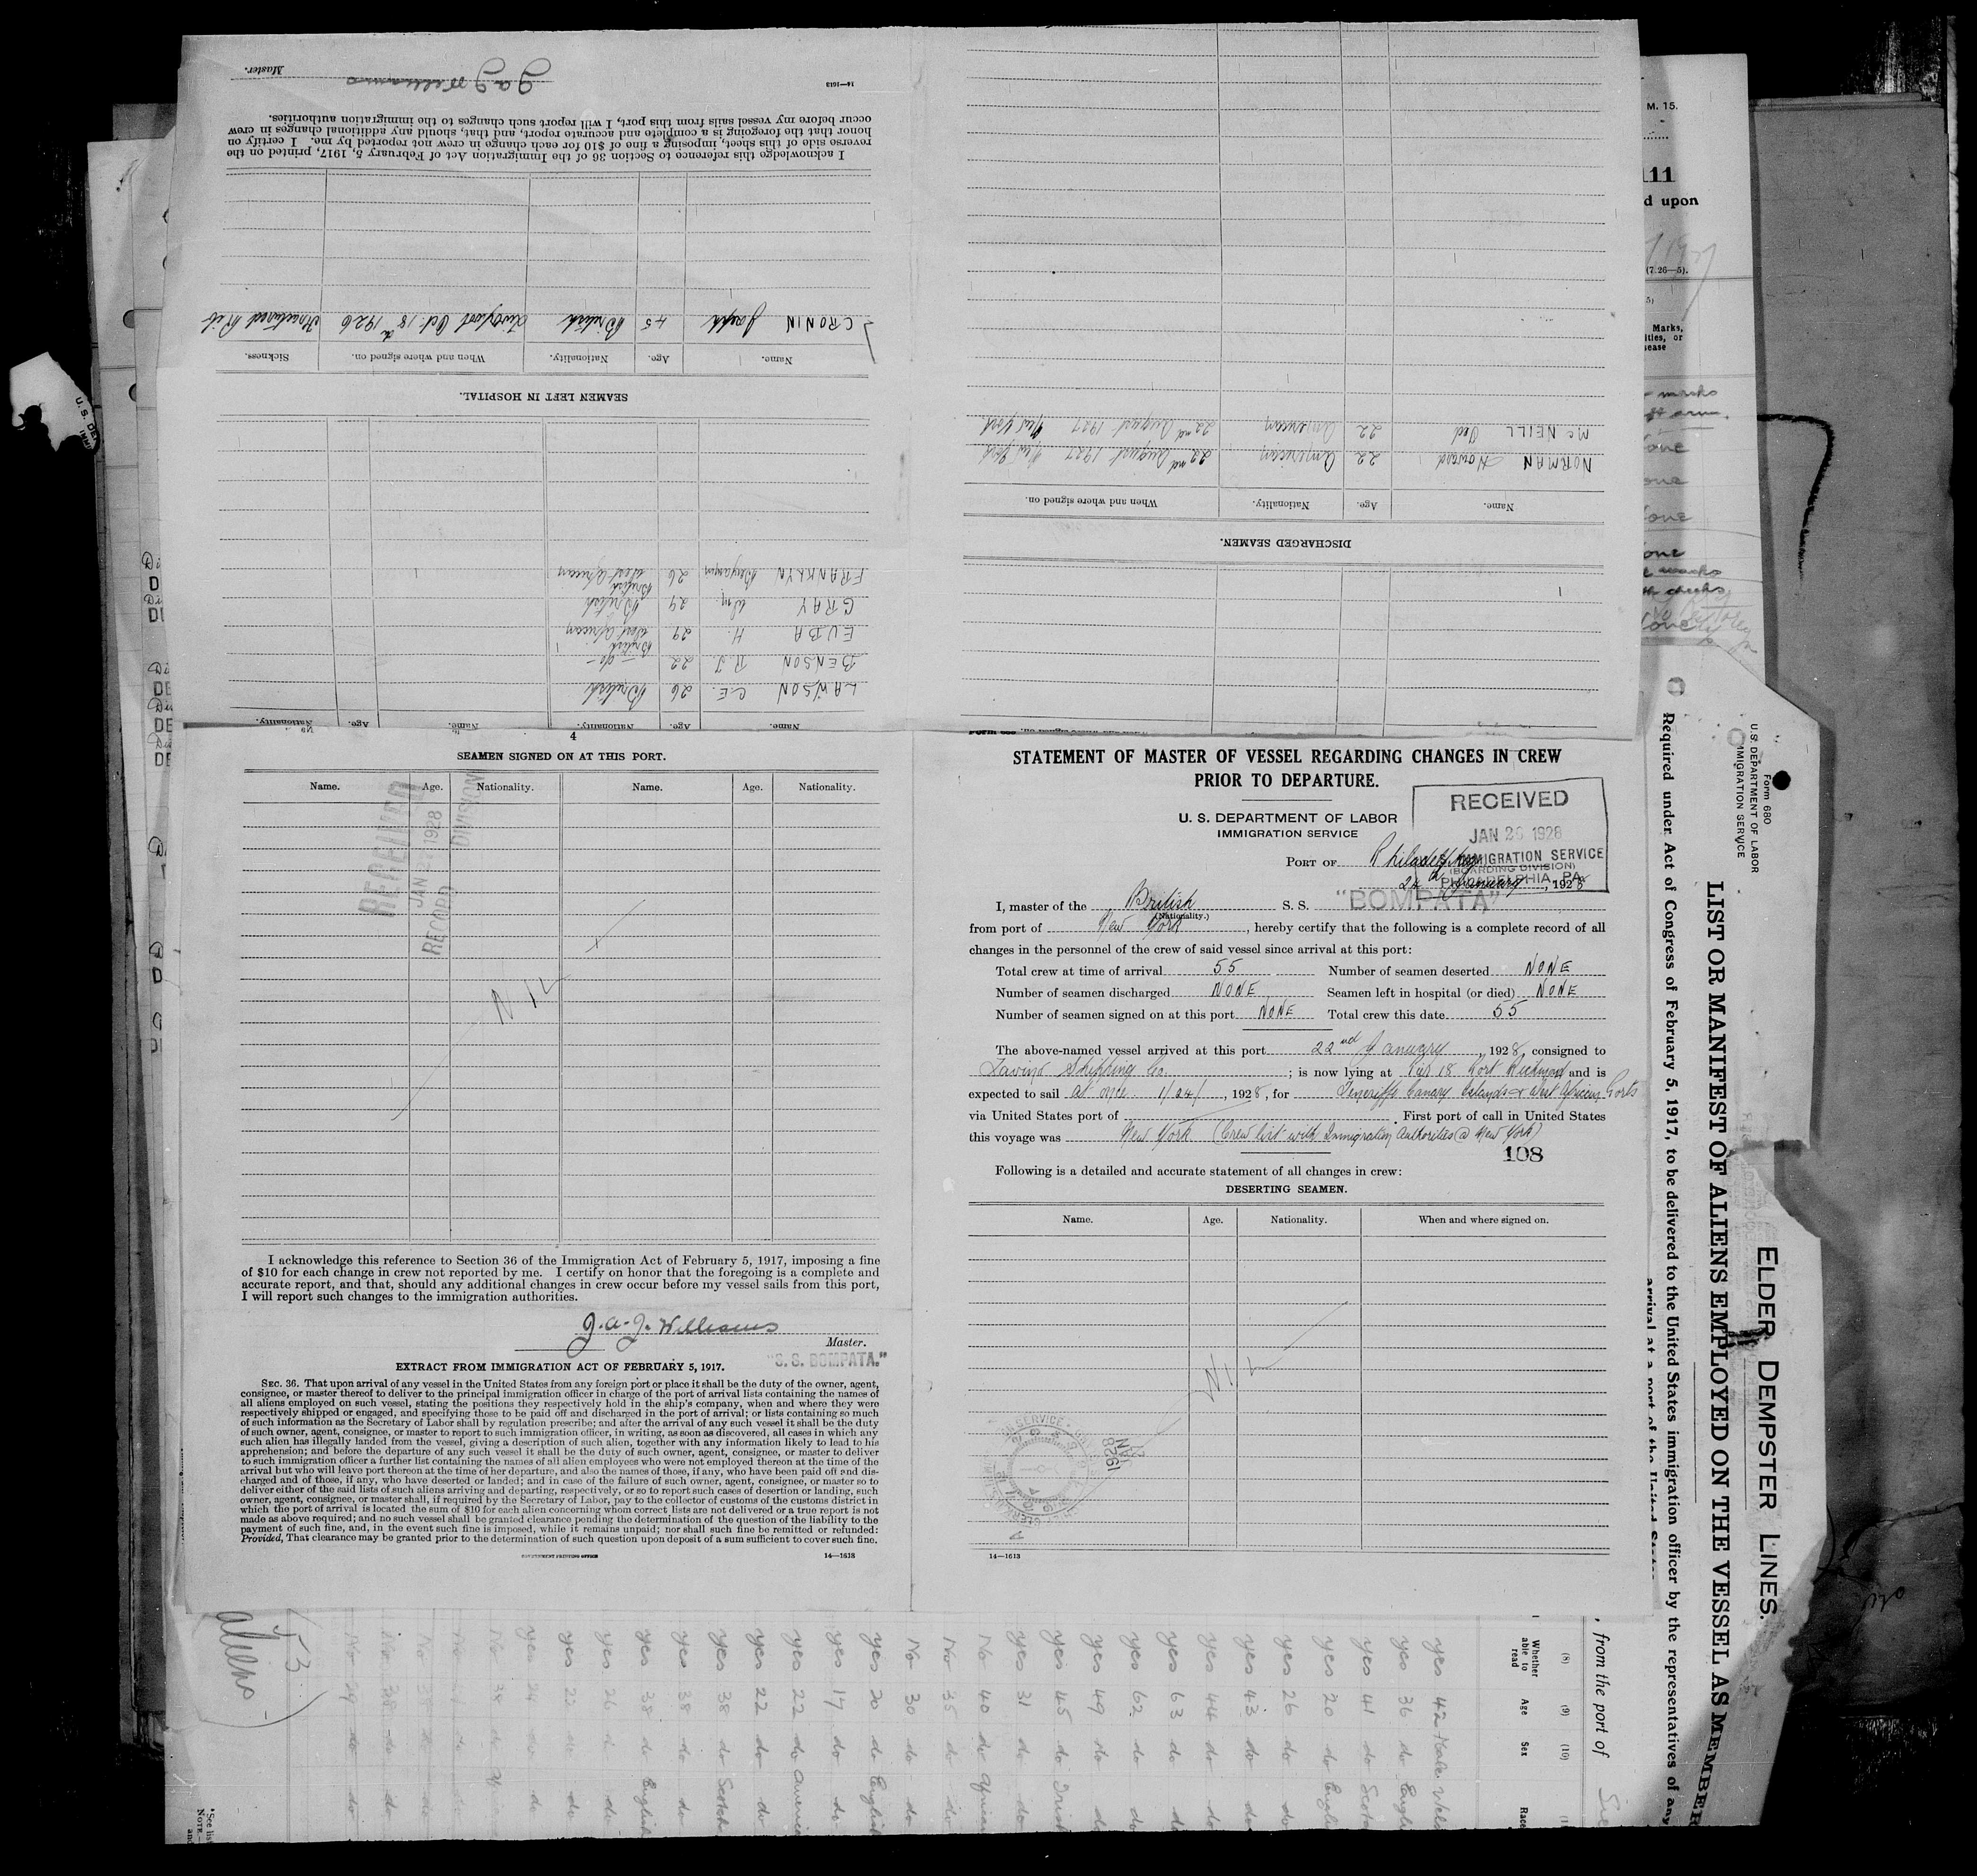 STATEMENT OF MASTER OF VESSEL REGARDING CHANGES IN CREW
PRIOR TO DEPARTURE.
U. S. DEPARTMENT OF LABOR
IMMIGRATION SERVICE
RECEIVED
JAN 26 1928
IMMIGRATION SERVICE
(BOARDING DIVISION)
PHILADELPHIA, PA.
PORT OF Philadelphia
24th January, 1928
I, master of the British S. S. "BOMPATA"
(Nationality.)
from port of New York, hereby certify that the following is a complete record of all
changes in the personnel of the crew of said vessel since arrival at this port:
Total crew at time of arrival 55 Number of seamen deserted NONE
Number of seamen discharged NONE Seamen left in hospital (or died) NONE
Number of seamen signed on at this port NONE Total crew this date 55
The above-named vessel arrived at this port 22nd January, 1928, consigned to
Shipping Co. ; is now lying at Pier 18 Port Richmond and is
expected to sail at once 1/24/, 1928, for Teneriffe Canary Islands & West African Ports
via United States port of . First port of call in United States
this voyage was New York (Crew list with Immigration Authorities @ New York)
108
Following is a detailed and accurate statement of all changes in crew:
DESERTING SEAMEN.
Name. Age. Nationality. When and where signed on.
NIL
1928
14—1613
4
SEAMEN SIGNED ON AT THIS PORT.
Name. Age. Nationality. Name. Age. Nationality.
RECEIVED
JAN 1928
RECORD DIVISION
NIL
I acknowledge this reference to Section 36 of the Immigration Act of February 5, 1917, imposing a fine
of $10 for each change in crew not reported by me. I certify on honor that the foregoing is a complete and
accurate report, and that, should any additional changes in crew occur before my vessel sails from this port,
I will report such changes to the immigration authorities.
J. A. J. Williams
Master.
"S. S. BOMPATA."
EXTRACT FROM IMMIGRATION ACT OF FEBRUARY 5, 1917.
SEC. 36. That upon arrival of any vessel in the United States from any foreign port or place it shall be the duty of the owner, agent,
consignee, or master thereof to deliver to the principal immigration officer in charge of the port of arrival lists containing the names of
all aliens employed on such vessel, stating the positions they respectively hold in the ship's company, when and where they were
respectively shipped or engaged, and specifying those to be paid off and discharged in the port of arrival; or lists containing so much
of such information as the Secretary of Labor shall by regulation prescribe; and after the arrival of any such vessel it shall be the duty
of such owner, agent, consignee, or master to report to such immigration officer, in writing, as soon as discovered, all cases in which any
such alien has illegally landed from the vessel, giving a description of such alien, together with any information likely to lead to his
apprehension; and before the departure of any such vessel it shall be the duty of such owner, agent, consignee, or master to deliver
to such immigration officer a further list containing the names of all alien employees who were not employed thereon at the time of the
arrival but who will leave port thereon at the time of her departure, and also the names of those, if any, who have been paid off and dis-
charged and of those, if any, who have deserted or landed; and in case of the failure of such owner, agent, consignee, or master so to
deliver either of the said lists of such aliens arriving and departing, respectively, or so to report such cases of desertion or landing, such
owner, agent, consignee, or master shall, if required by the Secretary of Labor, pay to the collector of customs of the customs district in
which the port of arrival is located the sum of $10 for each alien concerning whom correct lists are not delivered or a true report is not
made as above required; and no such vessel shall be granted clearance pending the determination of the question of the liability to the
payment of such fine, and, in the event such fine is imposed, while it remains unpaid; nor shall such fine be remitted or refunded:
Provided, That clearance may be granted prior to the determination of such question upon deposit of a sum sufficient to cover such fine.
GOVERNMENT PRINTING OFFICE 14—1613
Name. Age. Nationality. Name. Age. Nationality.
LAWSON C.E. 26 British
BENSON R.J. 22 - do -
EUBA H. 29 British West African
GRAY Wm. 24 British
FRANKLYN Benjamin 26 British West African
SEAMEN LEFT IN HOSPITAL.
Name. Age. Nationality. When and where signed on. Sickness.
CRONIN Joseph 45 British Liverpool Oct. 18th 1926 Fractured Rib
I acknowledge this reference to Section 36 of the Immigration Act of February 5, 1917, printed on the
reverse side of this sheet, imposing a fine of $10 for each change in crew not reported by me. I certify on
honor that the foregoing is a complete and accurate report, and that, should any additional changes in crew
occur before my vessel sails from this port, I will report such changes to the immigration authorities.
14—1613 J A J Williams
Master.
DISCHARGED SEAMEN.
Name. Age. Nationality. When and where signed on.
NORMAN Howard 22 American 22nd August 1927 New York
McNEILL Ted 22 American 22nd August 1927 New York
M. 15.
111
d upon
(7.26—5).
Marks,
Form 680
U.S. DEPARTMENT OF LABOR
IMMIGRATION SERVICE
ELDER DEMPSTER LINES.
LIST OR MANIFEST OF ALIENS EMPLOYED ON THE VESSEL AS MEMBER
Required under Act of Congress of February 5, 1917, to be delivered to the United States immigration officer by the representatives of any
arrival at a port of the United States
, from the port of
(8) (9) (10)
Whether able to read Age Sex Race
yes 42 Male
yes 36 do
yes 41 do
yes 20 do
yes 26 do
yes 43 do
yes 44 do
yes 63 do
yes 62 do
yes 49 do
yes 45 do Irish
yes 31 do
No 40 do African
No 35 do
No 30 do
yes 20 do English
yes 17 do
yes 22 do
yes 22 do
yes 38 do Scotch
yes 38 do
yes 38 do English
yes 26
yes 22 do
yes 24 do
No 38 do
No 38 do
No 29 do
53
aliens